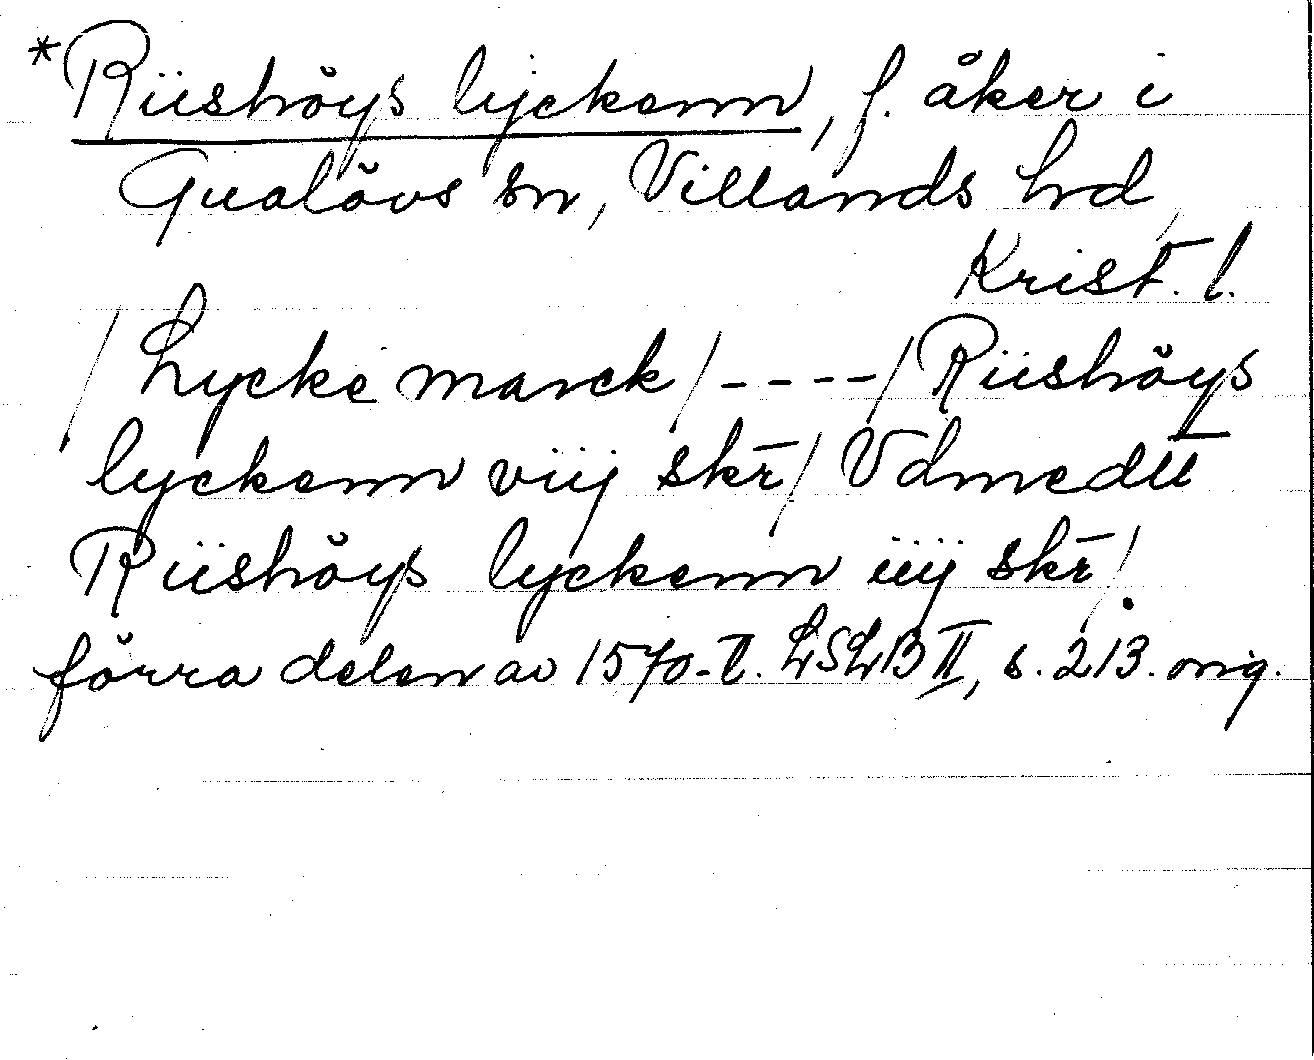 *Riishöys lyckenn, f. åker i
Gualövs sn, Villands hrd,
Krist. l.
/ Lycke marck / ---- / Riishöys
lyckenn viij skr̄ / Vdmedtt
Riishöys lyckenn iiij skr̄ /.
förra delen av 1570-t. LSLB II, s. 213. orig.